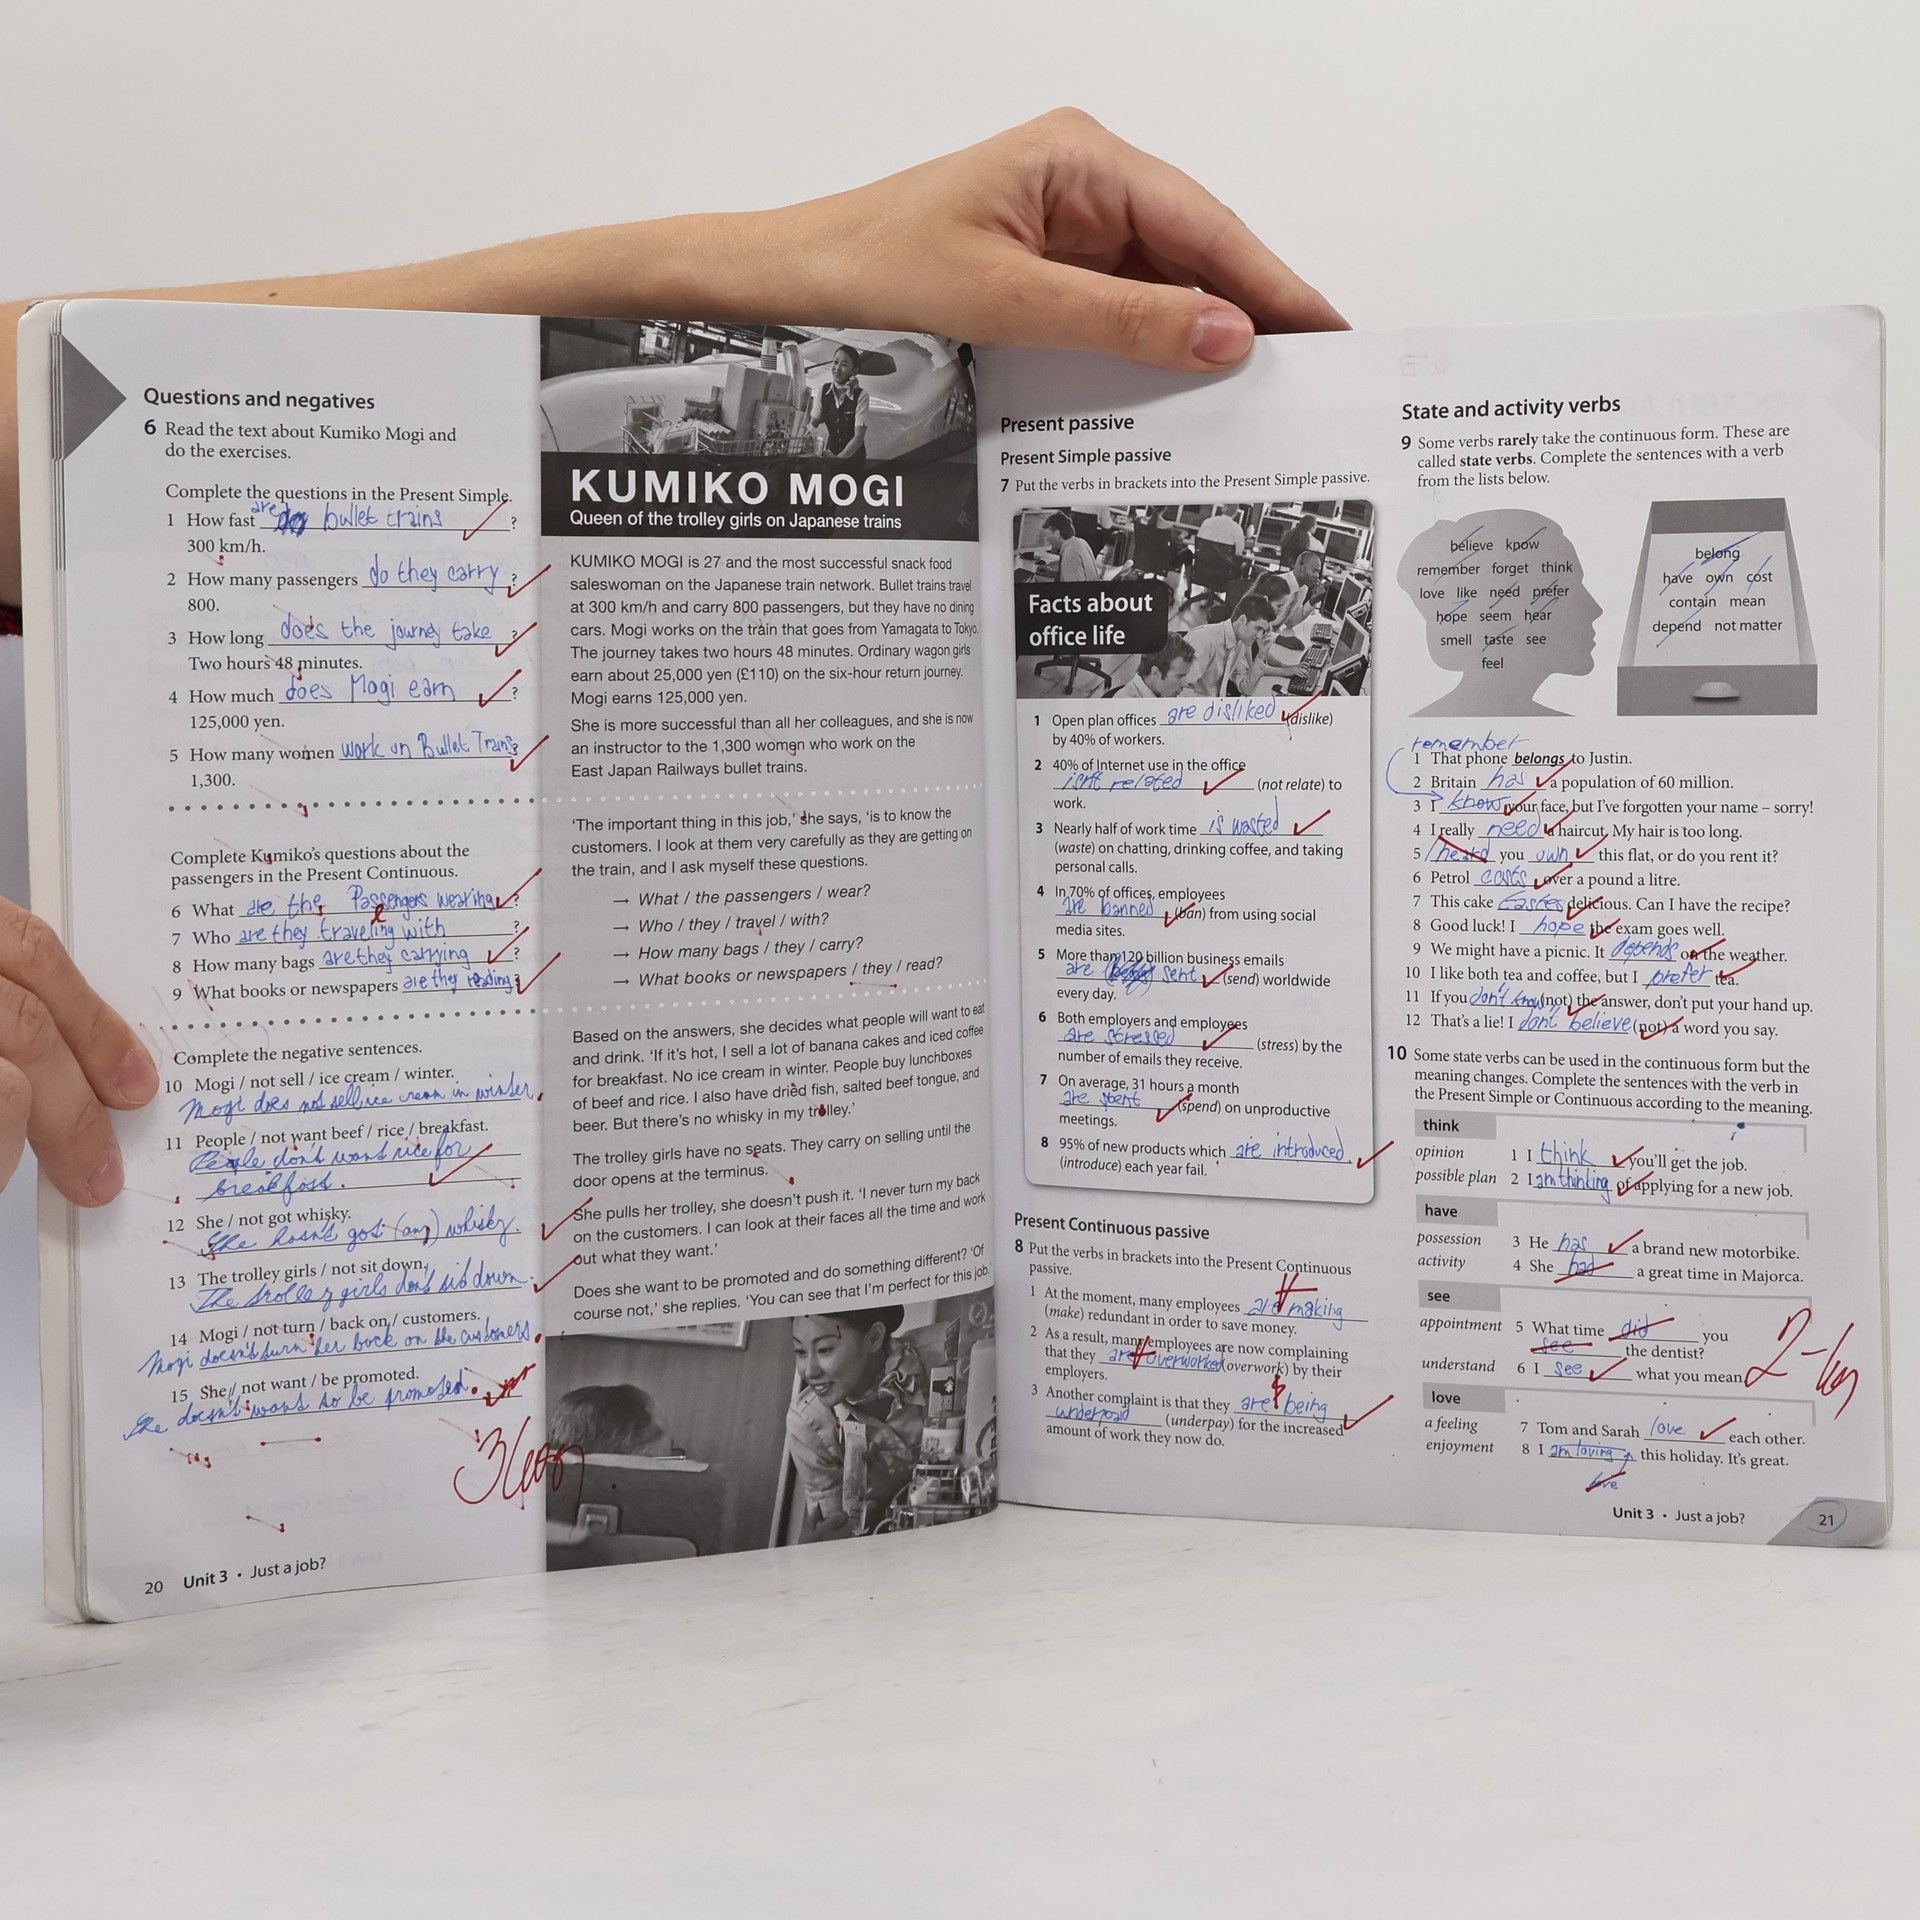 Questions and negatives
6 Read the text about Kumiko Mogi and
do the exercises.
Complete the questions in the Present Simple.
1 How fast are bullet trains ?
300 km/h.
2 How many passengers do they carry ?
800.
3 How long does the journey take ?
Two hours 48 minutes.
4 How much does Mogi earn ?
125,000 yen.
5 How many women work on Bullet Trains ?
1,300.
Complete Kumiko's questions about the
passengers in the Present Continuous.
6 What are the Passengers wearing ?
7 Who are they traveling with ?
8 How many bags are they carrying ?
9 What books or newspapers are they reading ?
Complete the negative sentences.
10 Mogi / not sell / ice cream / winter.
Mogi does not sell ice cream in winter.
11 People / not want beef / rice / breakfast.
People don't want rice for
breakfast.
12 She / not got whisky.
She hasn't got (any) whisky.
13 The trolley girls / not sit down.
The trolley girls don't sit down.
14 Mogi / not turn / back on / customers.
Mogi doesn't turn her back on the customers.
15 She / not want / be promoted.
She doesn't want to be promoted.
20 Unit 3 • Just a job?
KUMIKO MOGI
Queen of the trolley girls on Japanese trains
KUMIKO MOGI is 27 and the most successful snack food
saleswoman on the Japanese train network. Bullet trains travel
at 300 km/h and carry 800 passengers, but they have no dining
cars. Mogi works on the train that goes from Yamagata to Tokyo.
The journey takes two hours 48 minutes. Ordinary wagon girls
earn about 25,000 yen (£110) on the six-hour return journey.
Mogi earns 125,000 yen.
She is more successful than all her colleagues, and she is now
an instructor to the 1,300 women who work on the
East Japan Railways bullet trains.
'The important thing in this job,' she says, 'is to know the
customers. I look at them very carefully as they are getting on
the train, and I ask myself these questions.
→ What / the passengers / wear?
→ Who / they / travel / with?
→ How many bags / they / carry?
→ What books or newspapers / they / read?
Based on the answers, she decides what people will want to eat
and drink. 'If it's hot, I sell a lot of banana cakes and iced coffee
for breakfast. No ice cream in winter. People buy lunchboxes
of beef and rice. I also have dried fish, salted beef tongue, and
beer. But there's no whisky in my trolley.'
The trolley girls have no seats. They carry on selling until the
door opens at the terminus.
She pulls her trolley, she doesn't push it. 'I never turn my back
on the customers. I can look at their faces all the time and work
out what they want.'
Does she want to be promoted and do something different? 'Of
course not,' she replies. 'You can see that I'm perfect for this job.'
Present passive
Present Simple passive
7 Put the verbs in brackets into the Present Simple passive.
Facts about
office life
1 Open plan offices are disliked (dislike)
by 40% of workers.
2 40% of Internet use in the office
isn't related (not relate) to
work.
3 Nearly half of work time is wasted
(waste) on chatting, drinking coffee, and taking
personal calls.
4 In 70% of offices, employees
are banned (ban) from using social
media sites.
5 More than 120 billion business emails
are sent (send) worldwide
every day.
6 Both employers and employees
are stressed (stress) by the
number of emails they receive.
7 On average, 31 hours a month
are spent (spend) on unproductive
meetings.
8 95% of new products which are introduced
(introduce) each year fail.
Present Continuous passive
8 Put the verbs in brackets into the Present Continuous
passive.
1 At the moment, many employees are making
(make) redundant in order to save money.
2 As a result, many employees are now complaining
that they are overworked (overwork) by their
employers.
3 Another complaint is that they are being
underpaid (underpay) for the increased
amount of work they now do.
State and activity verbs
9 Some verbs rarely take the continuous form. These are
called state verbs. Complete the sentences with a verb
from the lists below.
believe know
remember forget think
love like need prefer
hope seem hear
smell taste see
feel
belong
have own cost
contain mean
depend not matter
remember
1 That phone belongs to Justin.
2 Britain has a population of 60 million.
3 I know your face, but I've forgotten your name – sorry!
4 I really need a haircut. My hair is too long.
5 heard you own this flat, or do you rent it?
6 Petrol costs over a pound a litre.
7 This cake tastes delicious. Can I have the recipe?
8 Good luck! I hope the exam goes well.
9 We might have a picnic. It depends on the weather.
10 I like both tea and coffee, but I prefer tea.
11 If you don't know (not) the answer, don't put your hand up.
12 That's a lie! I don't believe (not) a word you say.
10 Some state verbs can be used in the continuous form but the
meaning changes. Complete the sentences with the verb in
the Present Simple or Continuous according to the meaning.
think
opinion 1 I think you'll get the job.
possible plan 2 I am thinking of applying for a new job.
have
possession 3 He has a brand new motorbike.
activity 4 She had a great time in Majorca.
see
appointment 5 What time did you
see the dentist?
understand 6 I see what you mean.
love
a feeling 7 Tom and Sarah love each other.
enjoyment 8 I am loving this holiday. It's great.
love
Unit 3 • Just a job? 21